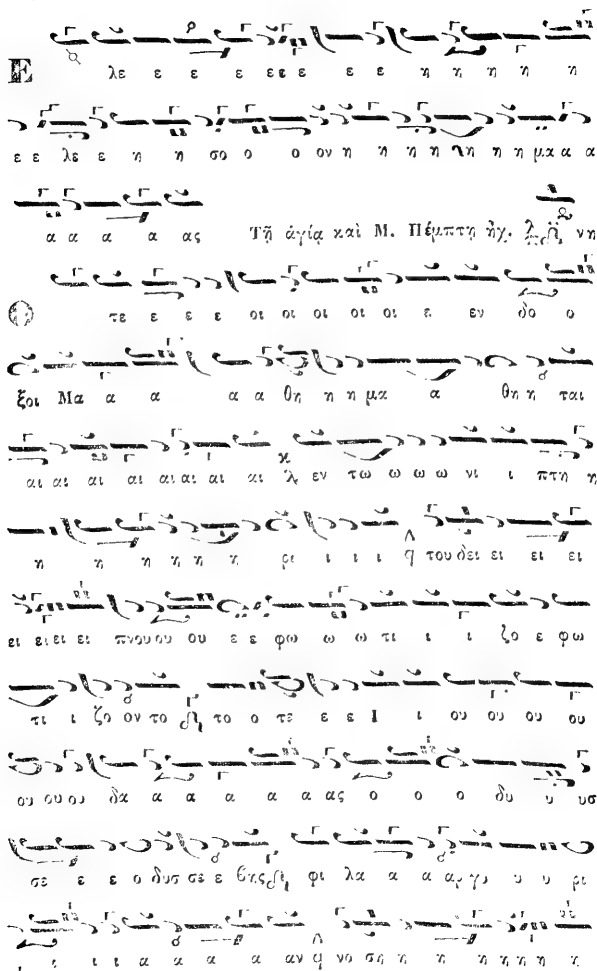 Ε λε ε ε ε ε ε ε ε ε η η η η η
ε ε λε ε η η σο ο ο ον η η η η η η η μα α α
α α α α ας Τῇ ἁγίᾳ καὶ Μ. Πέμπτῃ ἦχ. λ πδ νη
Ο τε ε ε ε οι οι οι οι οι ε εν δο ο
ξοι Μα α α α α θη η η μα α θη η ται
αι αι αι αι αι αι αι αι λ εν τω ω ω ω νι ι πτη η
η η η η η η ρι ι ι ι q του δει ει ει ει
ει ει ει ει πνου ου ου ε ε φω ω ω τι ι ι ζο ε φω
τι ι ζο ον το το ο τε ε ε Ι ι ου ου ου ου
ου ου ου δα α α α α α ας ο ο ο δυ υ υσ
σε ε ε ο δυσ σε ε βης φι λα α α αρ γυ υ υ ρι
ι ι ι α α α α αν q νο ση η η η η η η